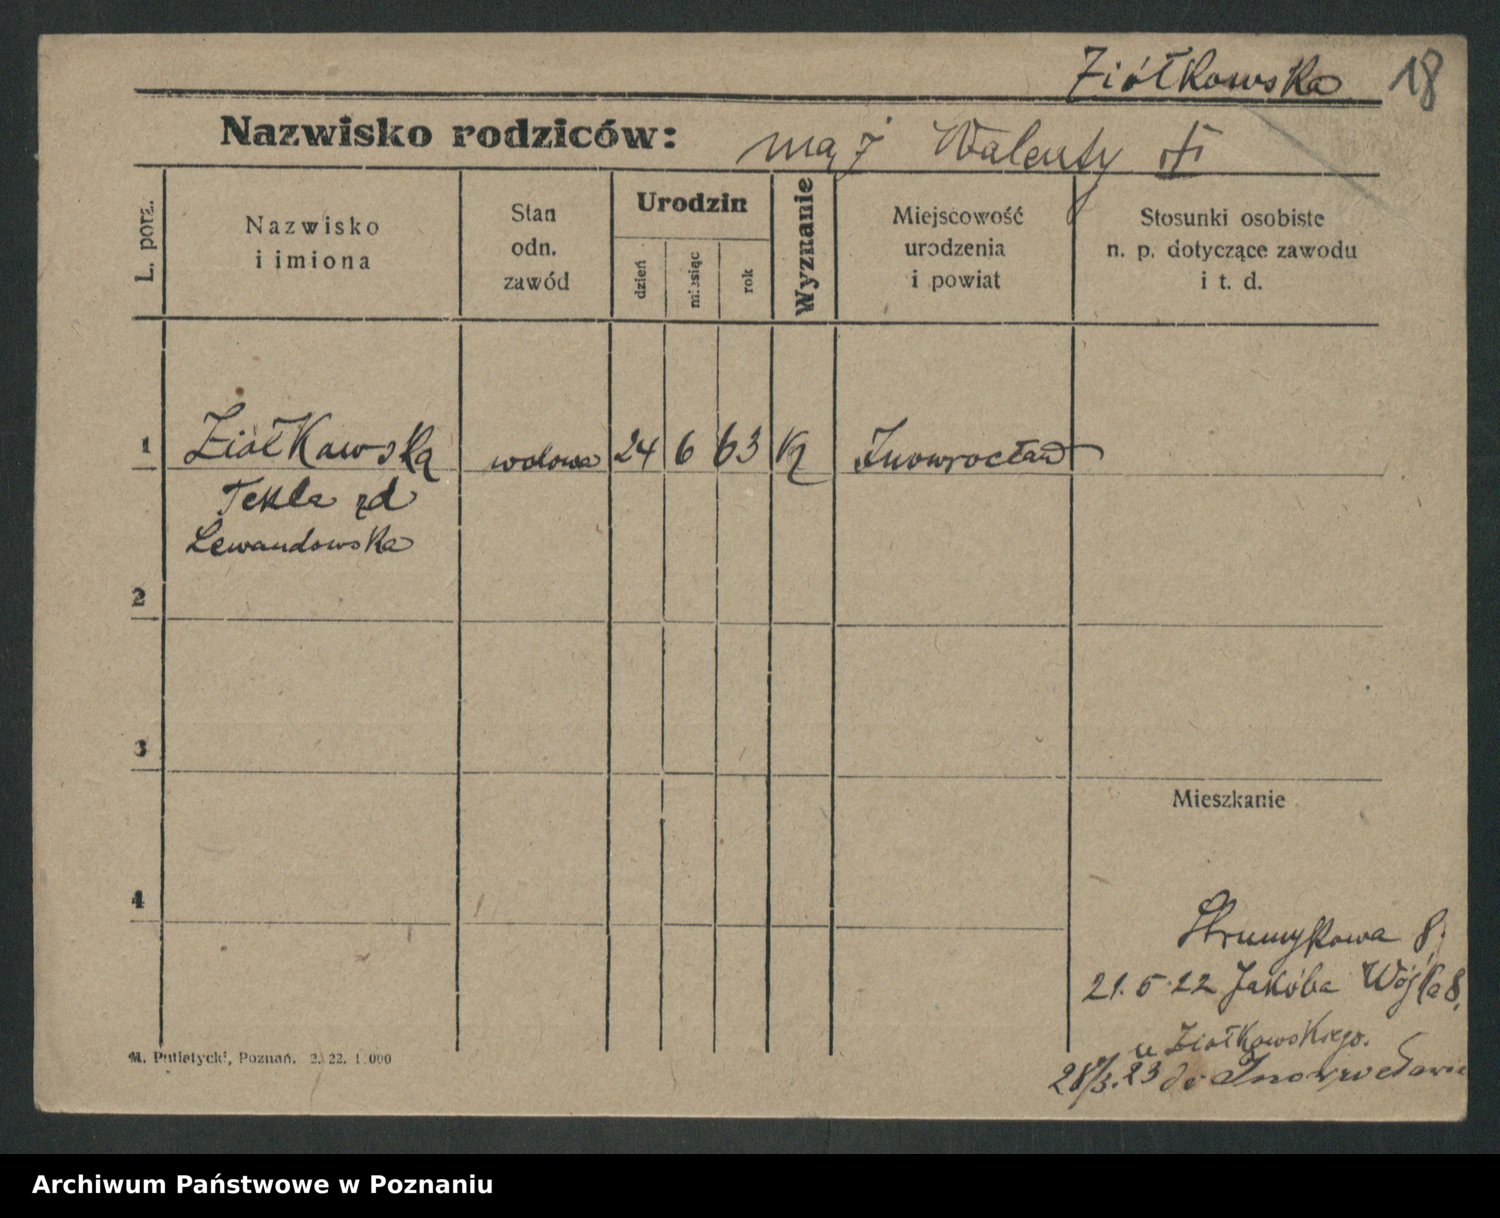 Ziółkowska 18
Nazwisko rodziców: mąż Walenty
L. porz.
Nazwisko
i imiona
Stan
odn.
zawód
Urodzin
dzień
miesiąc
rok
Wyznanie
Miejscowość
urodzenia
i powiat
Stosunki osobiste
n. p. dotyczące zawodu
i t. d.
1 Ziółkowska wdowa 24 6 63 Inowrocław
Tekla zd
Lewandowska
2
3
Mieszkanie
4
Strumykowa 8,
21.5.22 Jakóba Wójka 8,
u Ziołkowskiego.
28/3.23 do Inowrocławia
M. Putiatycki, Poznań. 2. 22. 1.000
Archiwum Państwowe w Poznaniu